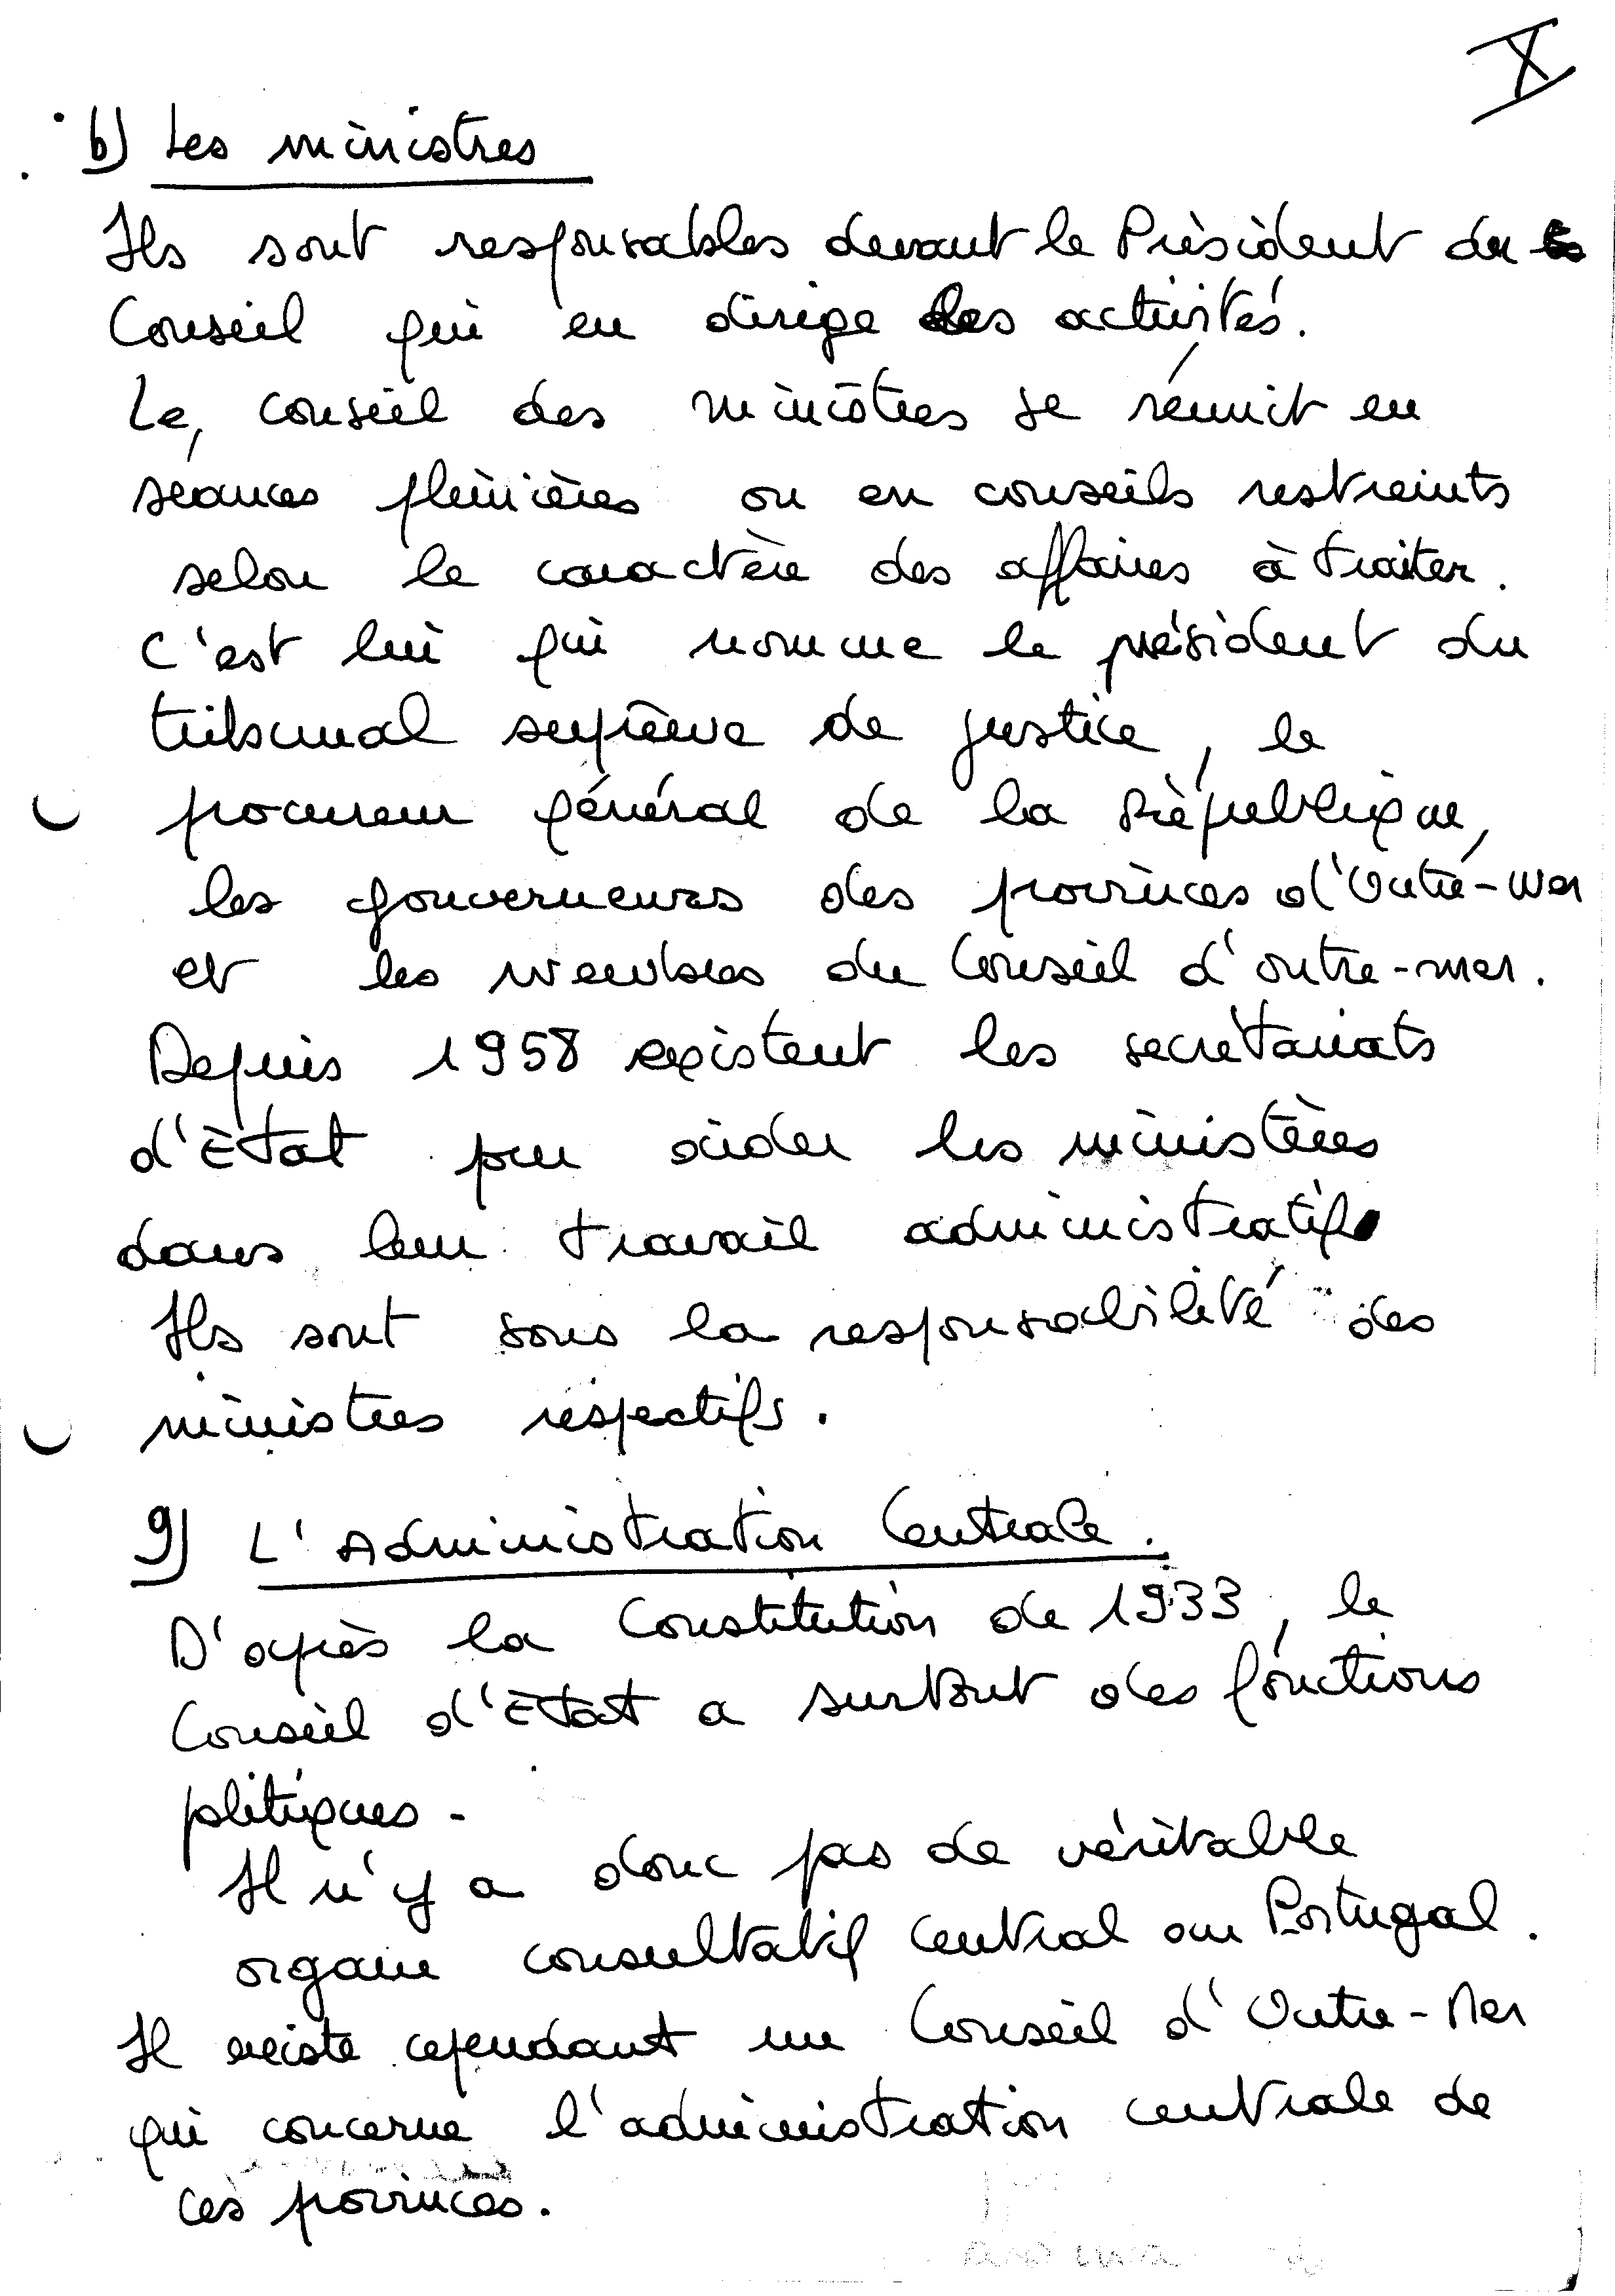 X
b) Les ministres
Ils sont responsables devant le Président du
Conseil qui en dirige les activités.
Le conseil des ministres se réunit en
séances plénières ou en conseils restreints
selon le caractère des affaires à traiter.
C'est lui qui nomme le président du
tribunal suprême de justice, le
procureur général de la République,
les gouverneurs des provinces d'Outre-mer
et les membres du Conseil d'outre-mer.
Depuis 1958 existent les secrétariats
d'État pour aider les ministères
dans leur travail administratif
Ils sont sous la responsabilité des
ministres respectifs.
9) L'Administration Centrale.
D'après la Constitution de 1933, le
Conseil d'État a surtout des fonctions
politiques.
Il n'y a donc pas de véritable
organe consultatif central au Portugal.
Il existe cependant un Conseil d'Outre-Mer
qui concerne l'administration centrale de
ces provinces.